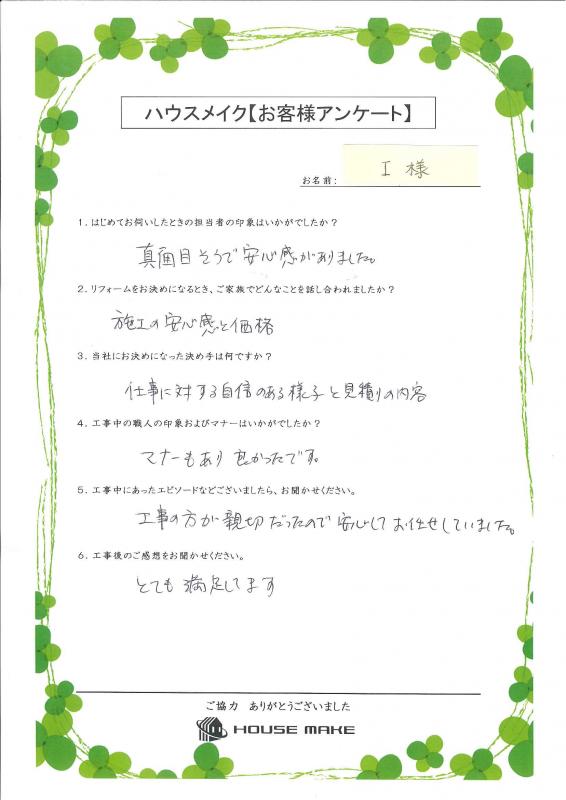 ハウスメイク【お客様アンケート】
お名前： I 様
１．はじめてお伺いしたときの担当者の印象はいかがでしたか？
真面目そうで安心感がありました。
２．リフォームをお決めになるとき、ご家族でどんなことを話し合われましたか？
施工の安心感と価格
３．当社にお決めになった決め手は何ですか？
仕事に対する自信のある様子と見積りの内容
４．工事中の職人の印象およびマナーはいかがでしたか？
マナーもあり良かったです。
５．工事中にあったエピソードなどございましたら、お聞かせください。
工事の方が親切だったので安心してお任せしていました。
６．工事後のご感想をお聞かせください。
とても満足してます
ご協力　ありがとうございました
HOUSE MAKE